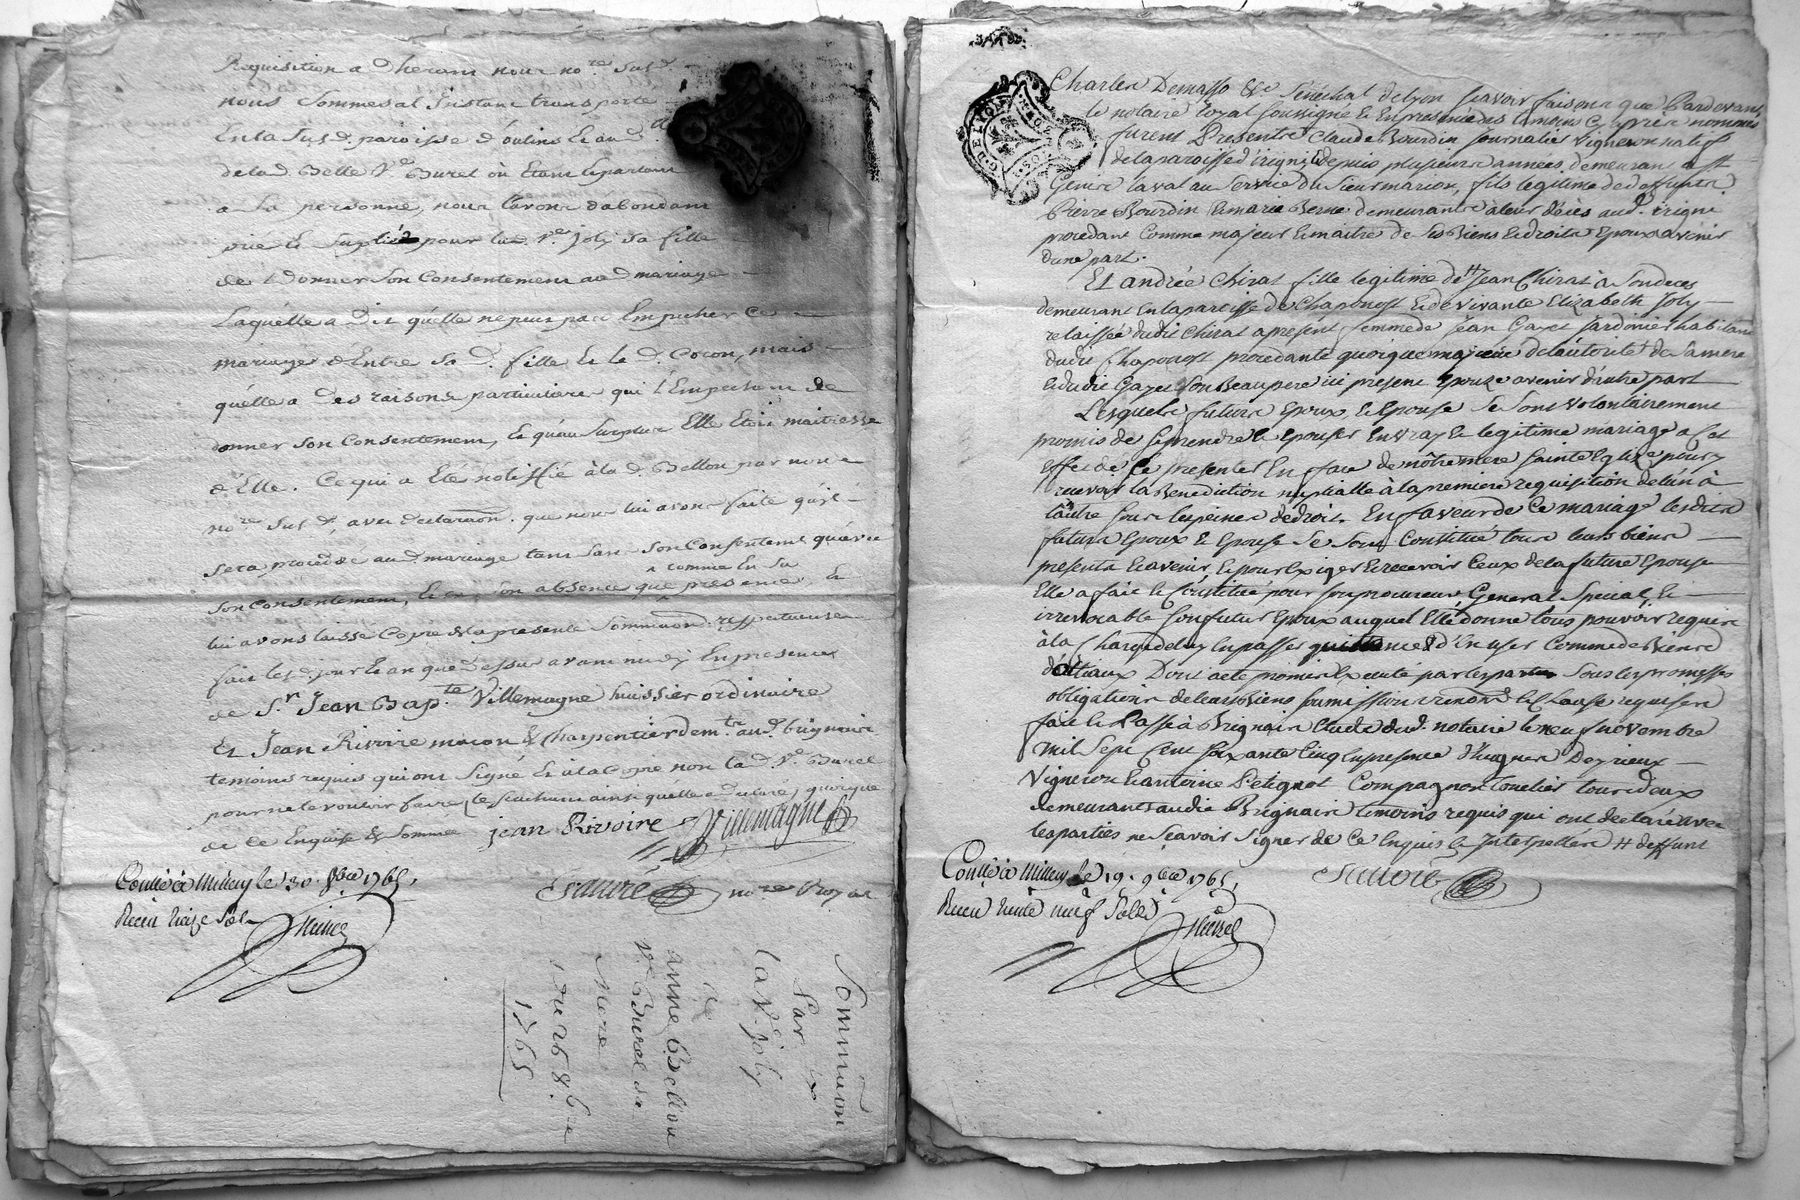 Requisition adherant nous no.re susd.
nous sommes a l'instant transporté
en la susd. paroisse d'oulins et au d.
de la d. Belle V.e Burel où étant et parlant
a sa personne, nous l'avons d'abondant
prié et suplié pour lad. v.e joly sa fille
de donner son Consentement aud mariage
Laquelle a dit qu'elle ne peut pas Empecher ce
mariage d'Entre sa d. fille et le d. Cocon, mais
qu'elle a des raisons particulieres qui l'Empechent de
donner son Consentement, et qu'au surplus Elle Etoit maitresse
d'Elle. Ce qui a été notiffié à la d. Bellon par nous
no.re susd., avec declaraon. que nous lui avons faite qu'il
sera procedé au d. mariage tant sans son Consentemt qu'avec
comme En sa
son Consentement, et en son absence que presence, et
lui avons laissé Copie de la presente sommaon. respectueuse
fait les d. jour et an que dessus avant midy En presence
de S.r Jean Bap.te Villemagne huissier ordinaire
Et Jean Rivoire maçon & charpentier dem.t au d. brignais
temoins requis qui ont signé et à la Copie non la d. V.e Burel
pour ne le vouloir faire, le sachant ainsi qu'elle a declaré, quoique
de ce Enquise & Sommée jean Rivoire Villemagne
Con.llé à Millery le 30. 8bre 1765,
Recu treize sols
Fauvré no.re Royal
Sommaon
Par
la V.e joly
à
anne Bellon
v.e Burel sa
Mere
Du 26 8.bre
1765
Charles Demasso &c Sénéchal de Lyon Sçavoir faisons que Pardevant
le notaire royal soussigné et En presence des temoins Cy après nommés
furent Présents Claude Bourdin Journalier Vigneron natif
de la paroisse d'irigni depuis plusieurs années demeurant a St
Genis laval au Service du Sieur marion, fils legitime de deffunts
Pierre Bourdin et marie Berne demeurants à leur décès aud. irigni
procedant Comme majeur et maitre de ses Biens et droits Epoux avenir
dune part.
Et andrée Chirat fille legitime de # Jean Chirat à Son deces
demeurant En la paroisse de Chaponost et de Vivante Elizabeth Joly
relaissée dudit Chirat a present femme de Jean Gayet Jardinier habitant
dudit Chaponost procedante quoique majeure de l'autorité de sa mere
et dudit Gayet Son Beau pere ici present Epouze avenir d'autre part
Lesquels futurs Epoux et Epouse Se Sont Volontairement
promis de se prendre et Epouser En vray et legitime mariage a Cet
effet de Se presenter En face de nôtre mere Sainte Eglize pour y
recevoir la Benediction nuptialle à la premiere requisition de l'un à
l'autre Sous les peines de droit. En faveur de Ce mariage lesdits
futurs Epoux et Epouse Se Sont Constitué tous leurs biens
presents et avenir, et pour Exiger et recevoir Ceux de la future Epouse
Elle a fait et Constitué pour son procureur General Special et
irrevocable Son futur Epoux auquel Elle donne tous pouvoir requis
à la Charge de les En passer quittance et d'En user Comme de Biens
dôttaux Dont acte promis Executé par les parties Sous les promesses
obligations de leurs Biens soumissions renon.s et Clause requises
fait et Passé à Brignais Etude dud. notaire le neuf novembre
mil Sept Cent Soixante Cinq En presence d'hugues Deyrieux
Vigneron et antoine Petignot Compagnon tonelier tous deux
demeurants audit Brignais temoins requis qui ont declaré avec
les parties ne Sçavoir signer de Ce Enquis et Interpellés # deffunt
Fauvré
Con.llé à Millery le 19. 9bre 1765,
Recu trente neuf Sols